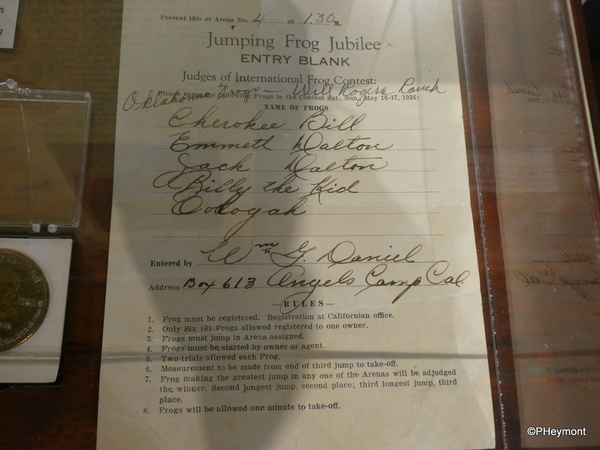 Present this at Arena No. 4 at 1:30 P.M.
Jumping Frog Jubilee
ENTRY BLANK
Judges of International Frog Contest:
Oklahoma Frogs — Will Rogers Ranch
Please enter following Frogs in the Contest Sat., Sun., May 16-17, 1936:
NAME OF FROGS
Cherokee Bill
Emmett Dalton
Jack Dalton
Billy the Kid
Oologah
Entered by Wm G. Daniel
Address Box 613 Angels Camp Cal.
—RULES—
1. Frog must be registered. Registration at Californian office.
2. Only Six (6) Frogs allowed registered to one owner.
3. Frogs must jump in Arena assigned.
4. Frogs must be started by owner or agent.
5. Two trials allowed each Frog.
6. Measurement to be made from end of third jump to take-off.
7. Frog making the greatest jump in any one of the Arenas will be adjudged
the winner. Second longest jump, second place; third longest jump, third
place.
8. Frogs will be allowed one minute to take-off.
©PHeymont